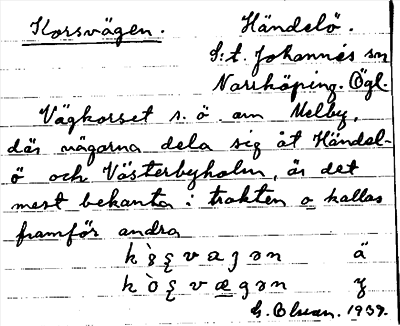 Korsvägen. Händelö.
S:t Johannes sn
Norrköping. Ögl.
Vägkorset s. ö. om Melby,
där vägarna dela sig åt Händel-
ö och Västerbyholm, är det
mest bekanta i trakten o kallas
framför andra
ä
G. Olsson. 1939.